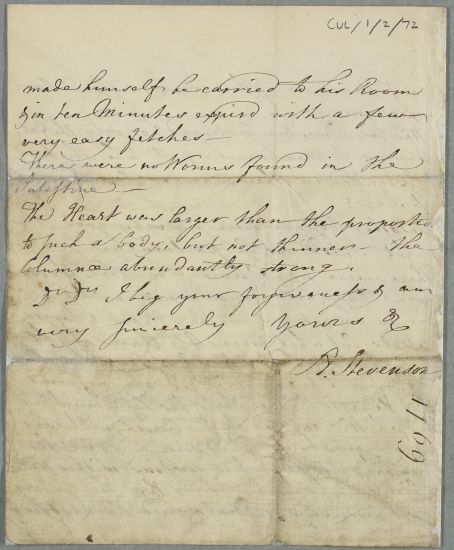 CUL/1/2/72
made himself be carried to his Room
& in ten Minutes expird with a few
very easy fetches —
There were no Worms found in the
Intestine —
The Heart was larger than the proportio
to such a body, but not thinner — the
Columnæ abundantly strong.
Dr Sr I beg your forgiveness & am
very sincerely Yours &c
A. Stevenson
1769